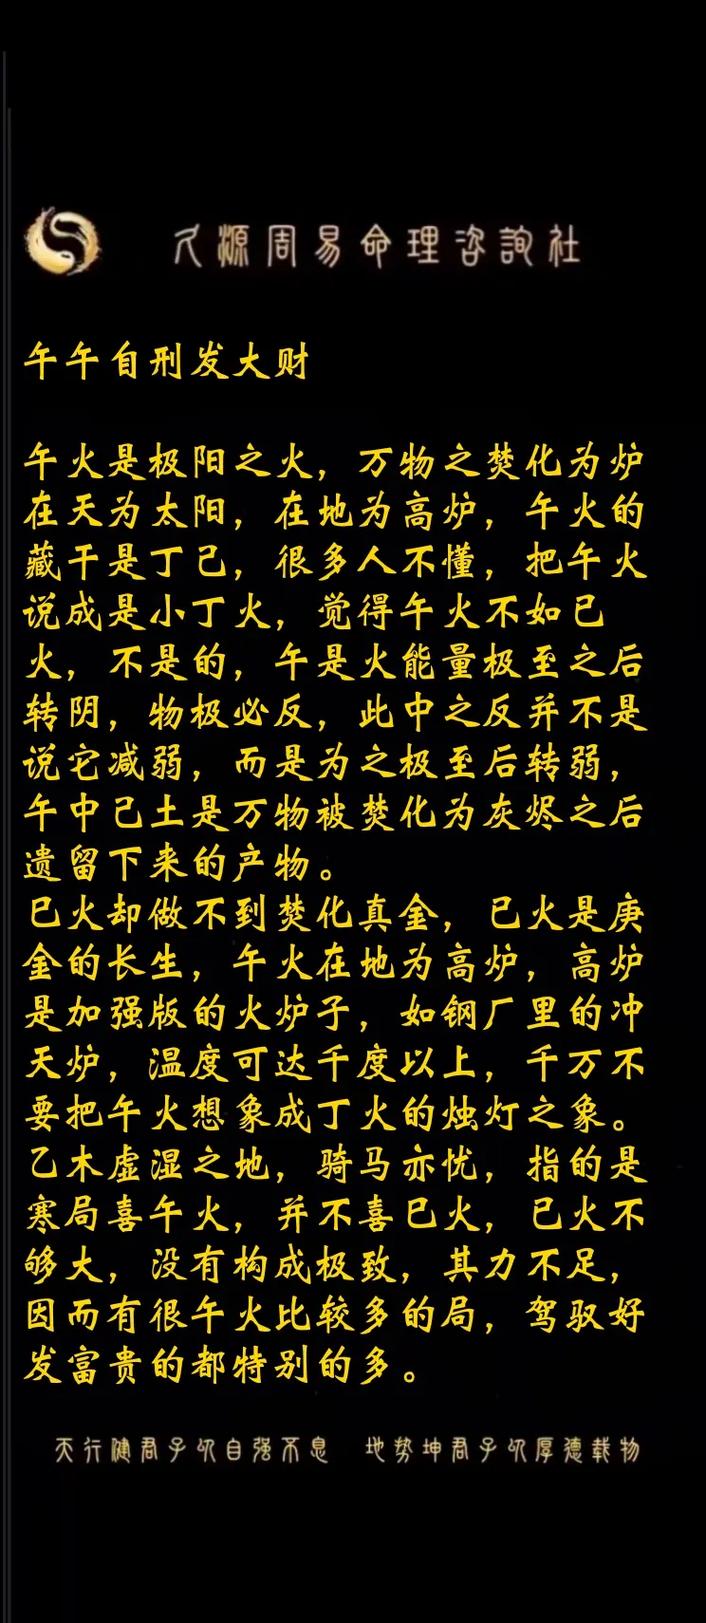 久源周易命理咨詢社
午午自刑发大财
午火是极阳之火，万物之焚化为炉
在天为太阳，在地为高炉，午火的
藏干是丁己，很多人不懂，把午火
说成是小丁火，觉得午火不如巳
火，不是的，午是火能量极至之后
转阴，物极必反，此中之反并不是
说它减弱，而是为之极至后转弱，
午中己土是万物被焚化为灰烬之后
遗留下来的产物。
巳火却做不到焚化真金，巳火是庚
金的长生，午火在地为高炉，高炉
是加强版的火炉子，如钢厂里的冲
天炉，温度可达千度以上，千万不
要把午火想象成丁火的烛灯之象。
乙木虚湿之地，骑马亦忧，指的是
寒局喜午火，并不喜巳火，巳火不
够大，没有构成极致，其力不足，
因而有很午火比较多的局，驾驭好
发富贵的都特别的多。
天行健君子以自强不息 地势坤君子以厚德载物